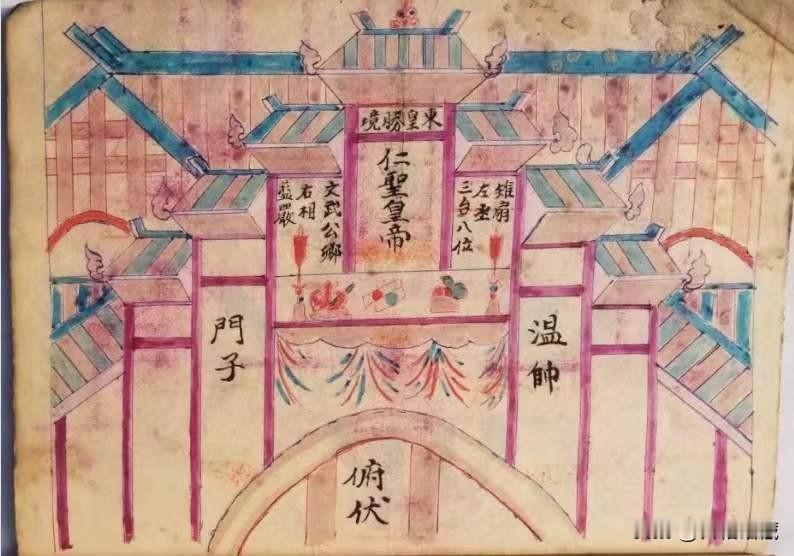 東皇勝境
仁聖皇帝
雉扇
左丞
三台八位
文武公卿
右相
藍嚴
温帥
門子
俯伏